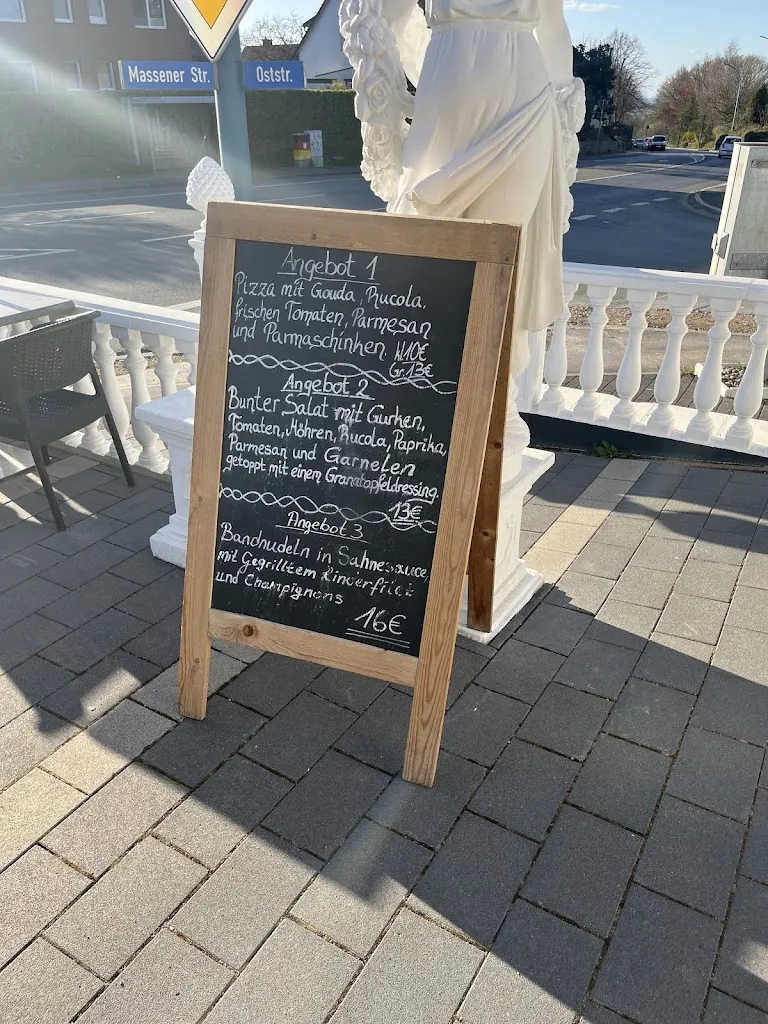 Massener Str.
Oststr.
Angebot 1
Pizza mit Gouda, Rucola,
frischen Tomaten, Parmesan
und Parmaschinken. kl10€
Gr.13€
Angebot 2
Bunter Salat mit Gurken,
Tomaten, Möhren, Rucola, Paprika,
Parmesan und Garnelen
getoppt mit einem Granatapfeldressing.
13€
Angebot 3
Bandnudeln in Sahnesauce
mit Gegrilltem Rinderfilet
und Champignons
16€